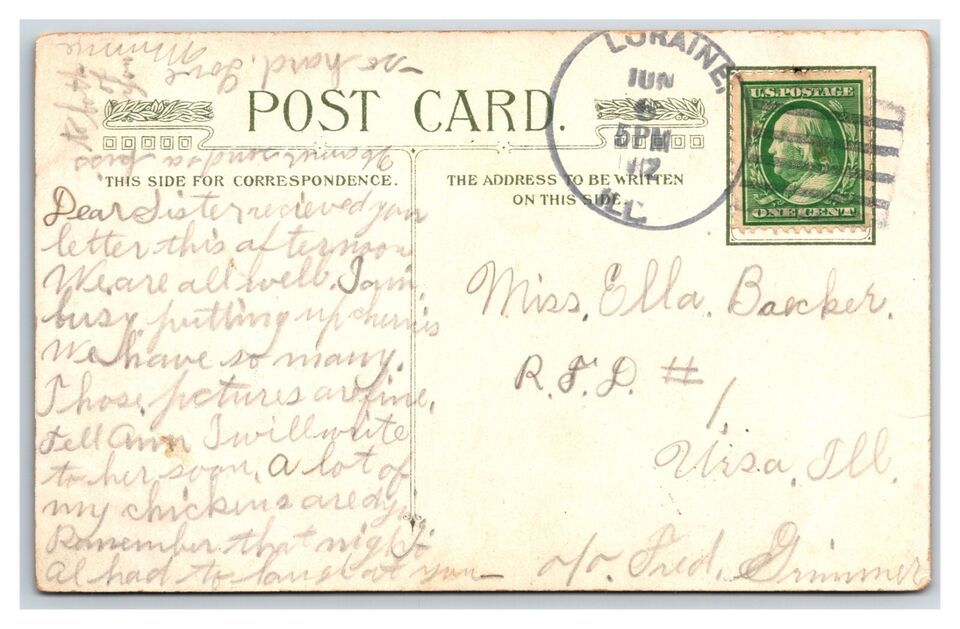 POST CARD.
THIS SIDE FOR CORRESPONDENCE.
THE ADDRESS TO BE WRITTEN
ON THIS SIDE.
LORAINE,
JUN
5 PM
12
ILL.
U.S. POSTAGE
ONE CENT
Dear Sister recieved your
letter this afternoon
We are all well. I am
busy putting up cherries
We have so many.
Those pictures are fine,
Tell Ann I will write
to her soon. A lot of
my chickins are dying
Remember that night
Al had to laugh at you
so hard. Love
Minnie
Miss, Ella, Baecker,
R.F.D. #
1,
Ursa, Ill.
c/o. Fred. Grimmer